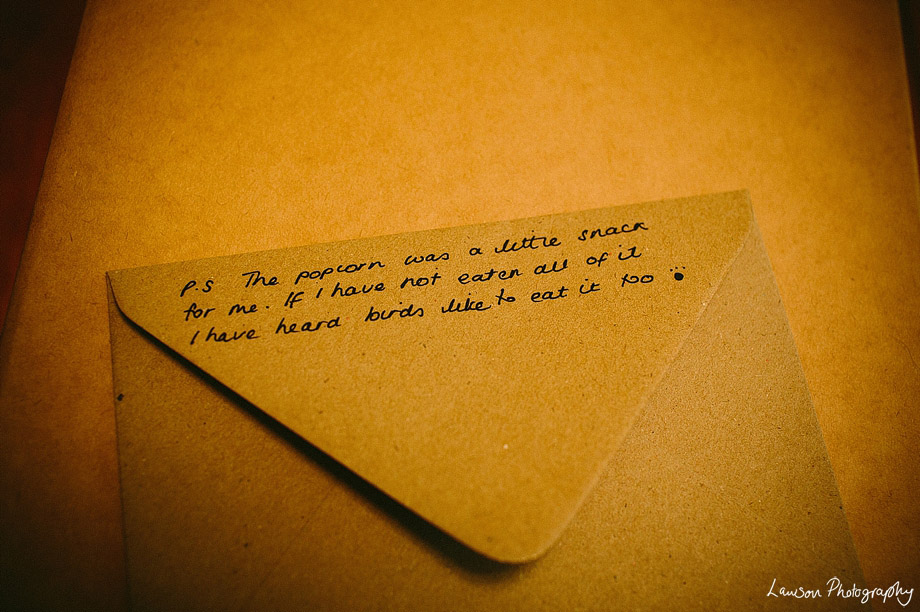 P.S The popcorn was a little snack
for me. If I have not eaten all of it
I have heard birds like to eat it too
Lawson Photography